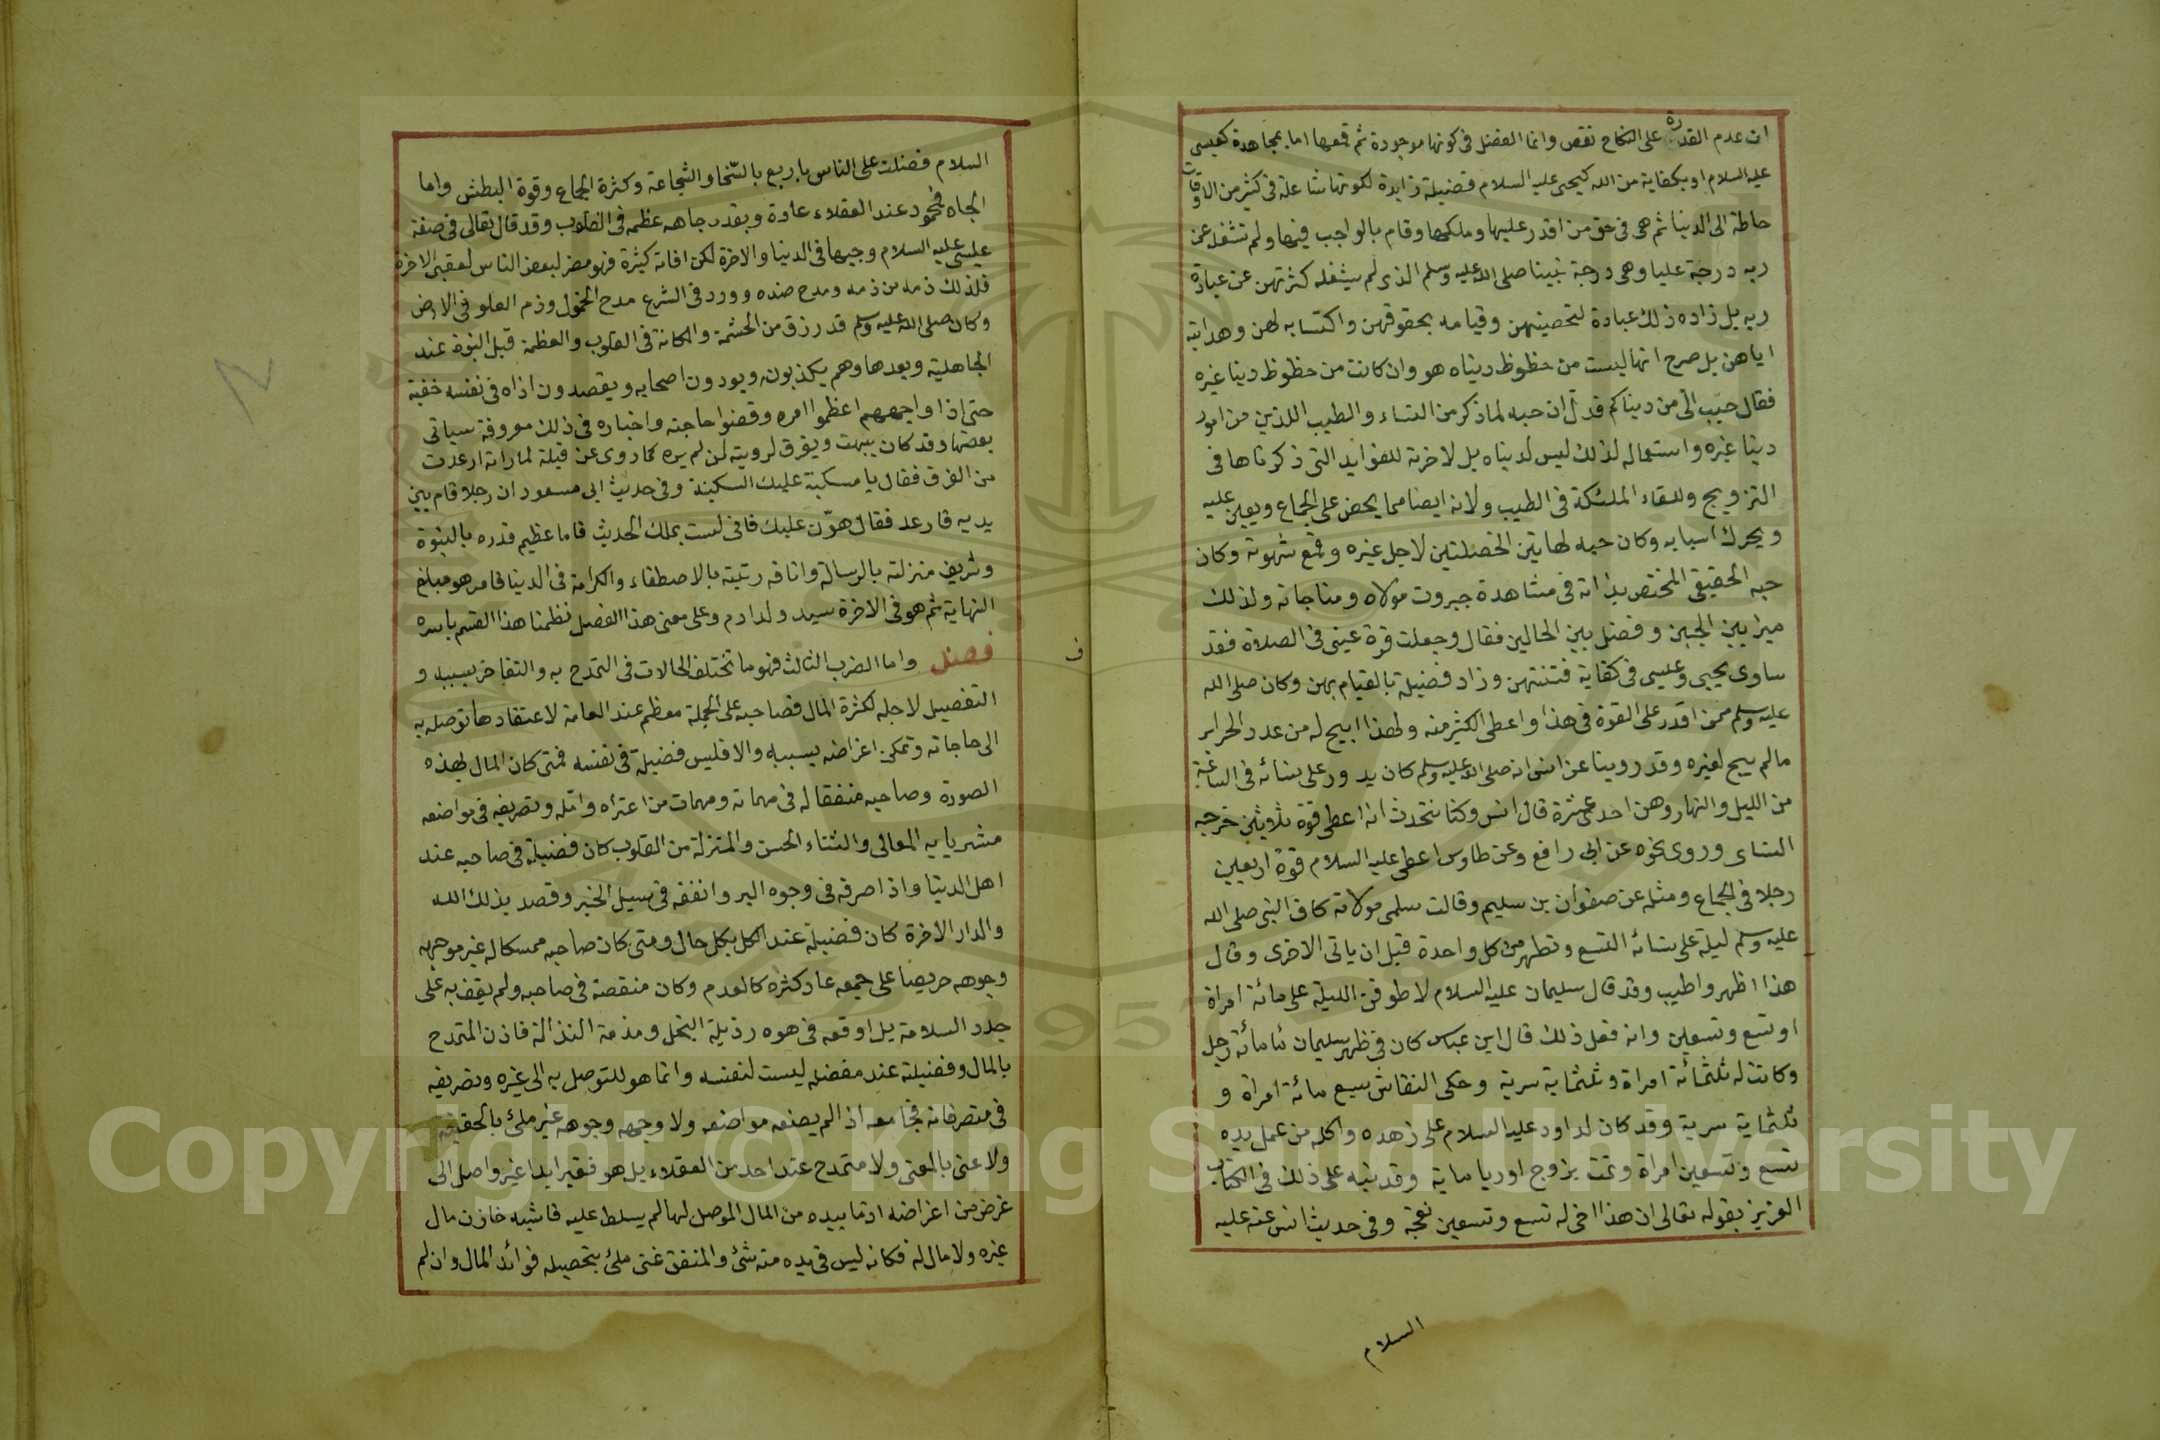 ان عدم القدرة على النكاح نقص وانما الفضل فى كونها موجودة ثم قمعها اما بمجاهدة كعيسى
عليه السلام او بكفاية من الله كيحيى عليه السلام فضيلة زايدة لكونها شاغلة فى كثير من الاوقات
حاطة الى الدنيا ثم هى فى حق من اقدر عليها وملكها وقام بالواجب فيها ولم تشغله عن
ربه درجة عليا وهى درجة نبينا صلى الله عليه وسلم الذى لم يشغله كثرتهن عن عبادة
ربه بل زاده ذلك عبادة لتحصينهن وقيامه بحقوقهن واكتسابه لهن وهدايته
اياهن بل صرح انها ليست من حظوظ دنياه هو وان كانت من حظوظ دنيا غيره
فقال حبب الى من دنياكم فدل ان حبه لما ذكر من النساء والطيب اللذين من امور
دنيا غيره واستعماله لذلك ليس لدنياه بل لاخرته للفوايد التى ذكرناها فى
التزويج وللقاء الملئكة فى الطيب ولانه ايضا مما يحض على الجماع ويعين عليه
ويحرك اسبابه وكان حبه لهاتين الخصلتين لاجل غيره وقمع شهوته وكان
حبه الحقيقى المختص بذاته فى مشاهدة جبروت مولاه ومناجاته ولذلك
ميز بين الحبين وفصل بين الحالين فقال وجعلت قرة عينى فى الصلاة فقد
ساوى يحيى وعيسى فى كفاية فتنتهن وزاد فضيلة بالقيام بهن وكان صلى الله
عليه وسلم ممن اقدر على القوة فى هذا واعطى الكثير منه ولهذا ابيح له من عدد الحراير
مالم يبح لغيره وقد روينا عن انس انه صلى الله عليه وسلم كان يدور على نسائه فى الساعة
من الليل والنهار وهن احدى عشرة قال انس وكنا نتحدث انه اعطى قوة ثلاثين خرجه
النساى وروى نحوه عن ابى رافع وعن طاوس اعطى عليه السلام قوة اربعين
رجلا فى الجماع ومثله عن صفوان بن سليم وقالت سلمى مولاته طاف النبى صلى الله
عليه وسلم ليلة على نسائه التسع وتطهر من كل واحدة قبل ان ياتى الاخرى وقال
هذا اطهر واطيب وقد قال سليمان عليه السلام لاطوفن الليلة على مائة امراة
او تسع وتسعين وانه فعل ذلك قال ابن عباس كان فى ظهر سليمان ماء مائة رجل
وكانت له ثلثمائة امراة وثلثماية سرية وحكى النقاش سبع مائة امراة و
ثلثماية سرية وقد كان لداود عليه السلام على زهده واكله من عمل يده
تسع وتسعين امراة وتمت بزوج اوريا ماية وقد نبه على ذلك فى الكتاب
العزيز بقوله تعالى ان هذا اخى له تسع وتسعين نعجة وفى حديث انس عنه عليه
السلام
السلام فضلت على الناس باربع بالسخا والشجاعة وكثرة الجماع وقوة البطش واما
الجاه فمحمود عند العقلاء عادة وبقدر جاهه عظمه فى القلوب وقد قال تعالى فى صفة
عيسى عليه السلام وجيها فى الدنيا والاخرة لكن افاته كثيرة فهو مضر لبعض الناس لعقبى الاخرة
فلذلك ذمه من ذمه ومدح ضده وورد فى الشرع مدح الخمول وذم العلو فى الارض
وكان صلى الله عليه وسلم قد رزق من الحشمة والمكانة فى القلوب والعظمة قبل النبوة عند
الجاهلية وبعدها وهم يكذبونه ويودون اصحابه ويقصدون اذاه فى نفسه خفية
حتى اذا واجههم اعظموا امره وقضوا حاجته واخباره فى ذلك معروفة سياتى
بعضها وقد كان يبهت ويفرق لرويته لمن لم يره كما روى عن قيلة لما راته ارعدت
من الفرق فقال يا مسكينة عليك السكينة وفى حديث ابى مسعود ان رجلا قام بين
يديه فارعد فقال هون عليك فانى لست بملك الحديث فاما عظيم قدره بالنبوة
وشريف منزلته بالرسالة وانافة رتبته بالاصطفاء والكرامة فى الدنيا فامر هو مبلغ
النهاية ثم هو فى الاخرة سيد ولد ادم وعلى معنى هذا الفصل نظمنا هذا القسم باسره
فصل واما الضرب الثالث فهو ما تختلف الحالات فى التمدح به والتفاخر بسببه و
التفضيل لاجله لكثرة المال فصاحبه على الجملة معظم عند العامة لاعتقادها توصله به
الى حاجاته وتمكن اغراضه بسببه والا فليس فضيلة فى نفسه فمتى كان المال بهذه
الصورة وصاحبه منفقا له فى مهماته ومهمات من اعتراه وامله وتصريفه فى مواضعه
مشتريا به المعالى والثناء الحسن والمنزلة من القلوب كان فضيلة فى صاحبه عند
اهل الدنيا واذا صرفه فى وجوه البر وانفقه فى سبيل الخير وقصد بذلك الله
والدار الاخرة كان فضيلة عند الكل بكل حال ومتى كان صاحبه ممسكا له غير موجهه
وجوهه حريصا على جمعه عاد كثره كالعدم وكان منقصة فى صاحبه ولم يقف به على
جدد السلامة بل اوقعه فى هوه رذيلة البخل ومذمة النذالة فاذن المتمدح
بالمال وفضيلته عند مفضله ليست لنفسه وانما هو للتوصل به الى غيره وتصريفه
فى متصرفاته فجامعه اذا لم يضعه مواضعه ولا وجهه وجوهه غير ملئ بالحقيقة
ولا غنى بالمعنى ولا متمدح عند احد من العقلاء بل هو فقير ابدا غير واصل الى
غرض من اغراضه اذ ما بيده من المال الموصل لها لم يسلط عليه فاشبه خازن مال
غيره ولا مال له فكانه ليس فى يده منه شئ والمنفق غنى ملئ بتحصيله فوائد المال وان لم
ف
Copyright © King Saud University